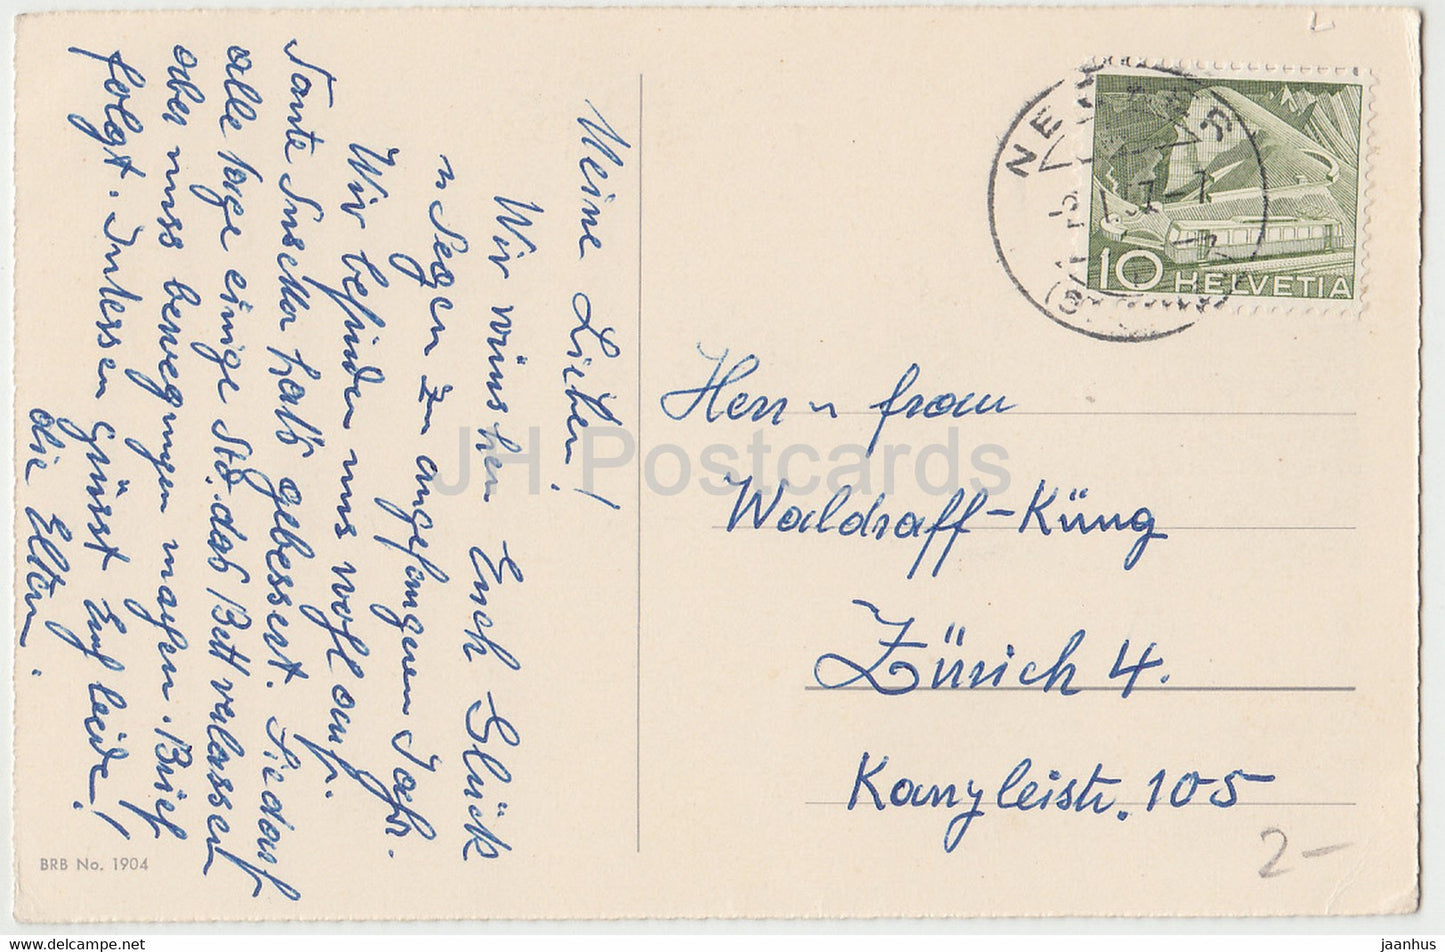 Meine Lieben!
Wir wünschen Euch Glück
u Segen zu angefangenen Jahr.
Wir befinden uns wohl auf.
Tante Susetta hat's gebessert. Sie darf
alle Tage einige Std. das Bett verlassen
aber muss bewegungen machen. Brief
folgt. Intessen grüsst Euch beide!
die Eltern.
BRB No. 1904
10 HELVETIA
Herr u frau
Waldraff-Küng
Zürich 4.
Kanzleistr. 105
2-
JH Postcards
jaanhus — https://www.jhpostcards.com